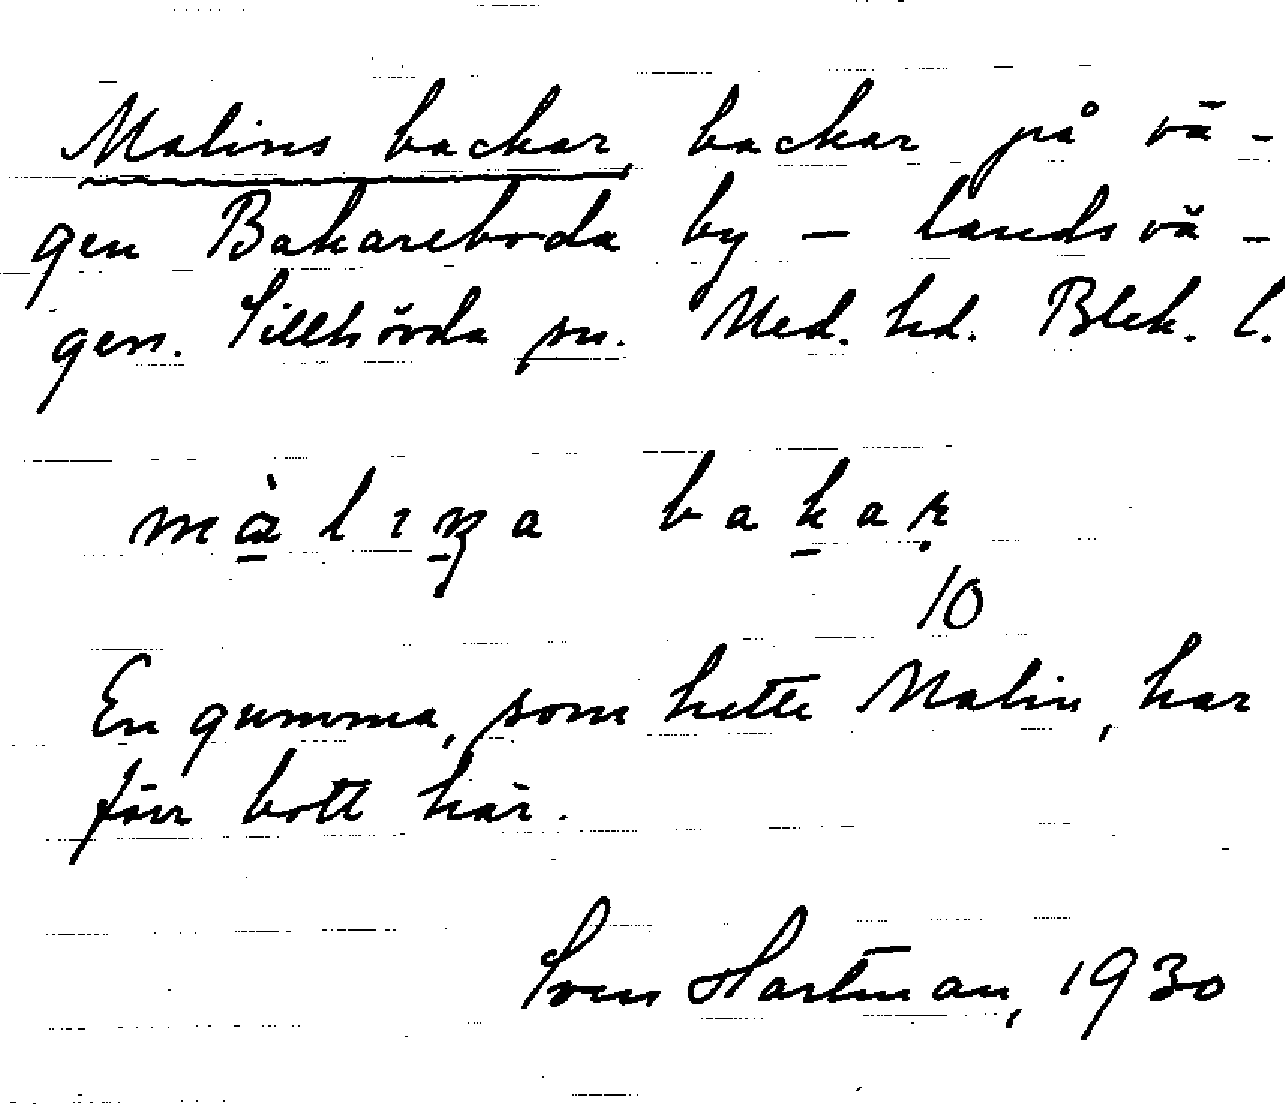 Malins backar, backar på vä-
gen Bakareboda by – landsvä-
gen. Tillhövda sn. Med. hd. Blek. l.
bakar
10
En gumma, som hette Malin, har
förr bott här.
Sven Hartman, 1930